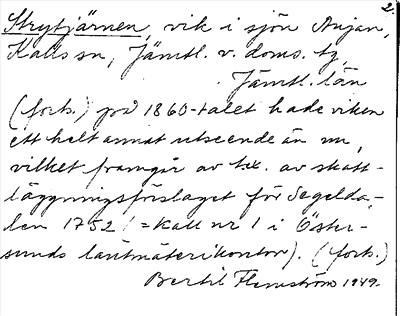 2.
Strytjärnen, vik i sjön Anjan,
Kalls sn, Jämtl. v. doms. tg,
Jämtl. län
(forts.) på 1860-talet hade viken
ett helt annat utseende än nu,
vilket framgår av t.ex. av skatt-
läggningsförslaget för Segelda-
len 1752 (= Kall nr 1 i Öster-
sunds lantmäterikontor). (forts.)
Bertil Flemström 1949.